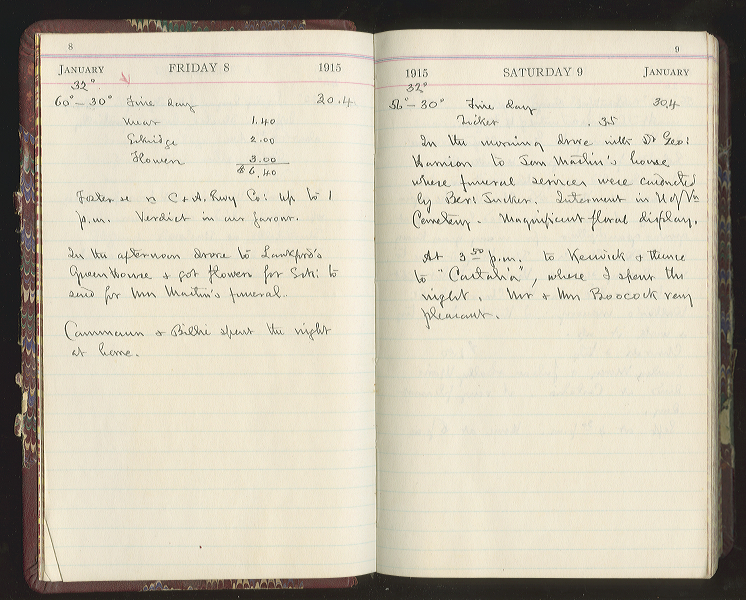 8
JANUARY FRIDAY 8 1915
32°
60°–30° Fine day 30.4
Meat 1.40
2.00
Flowers 3.00
$6.40
Foster et al vs C & A. Rwy Co: up to 1
p.m. Verdict in our favour.
In the afternoon drove to Lankford's
Green House & got flowers for to
send for Mrs Martin's funeral.
Cammann & Billie spent the night
at home.
9
1915 SATURDAY 9 JANUARY
32°
56°–30° Fine day 30.4
Ticket .35
In the morning drove with Dr Geo:
Harrison to Tom Martin's house
where funeral services were conducted
by Bev: Tucker. Interment in U of Va
Cemetery. Magnificent floral display.
At 3 50 p.m. to Keswick & thence
to "Castalia", where I spent the
night. Mr & Mrs Boocock very
pleasant.